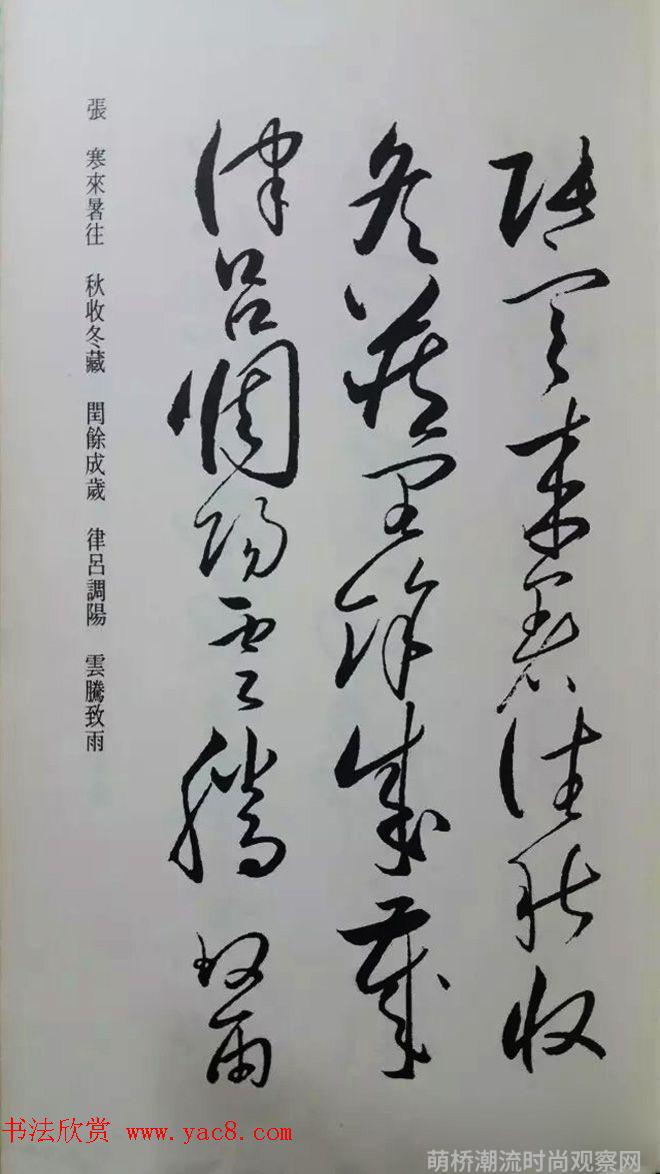 張寒來暑往秋收
冬藏閏餘成歲
律呂調陽雲騰致雨
張 寒來暑往 秋收冬藏 閏餘成歲 律呂調陽 雲騰致雨
书法欣赏 www.yac8.com
萌桥潮流时尚观察网